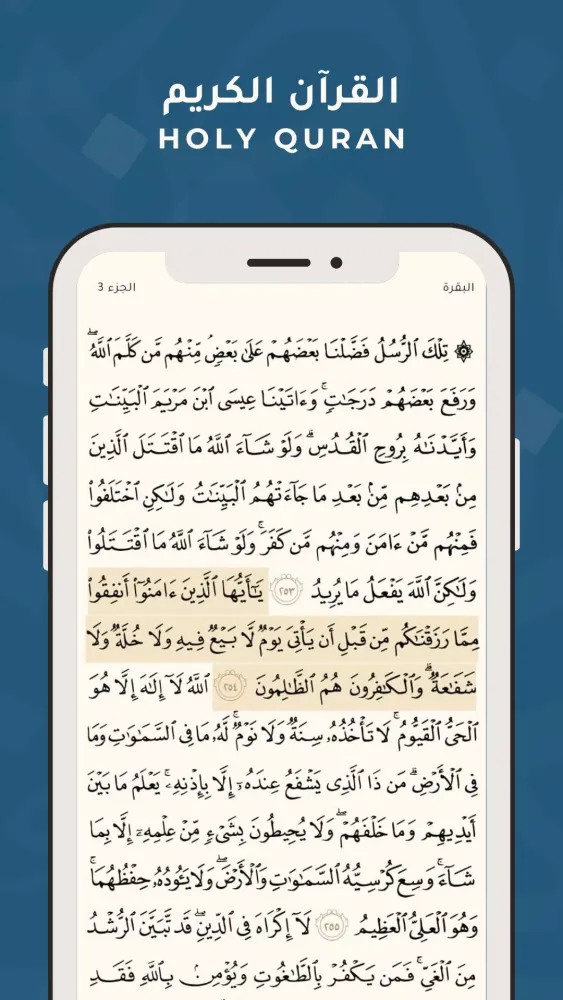 القرآن الكريم
HOLY QURAN
البقرة الجزء 3
۞ تِلْكَ ٱلرُّسُلُ فَضَّلْنَا بَعْضَهُمْ عَلَىٰ بَعْضٍۘ مِّنْهُم مَّن كَلَّمَ ٱللَّهُۖ
وَرَفَعَ بَعْضَهُمْ دَرَجَٰتٍۚ وَءَاتَيْنَا عِيسَى ٱبْنَ مَرْيَمَ ٱلْبَيِّنَٰتِ
وَأَيَّدْنَٰهُ بِرُوحِ ٱلْقُدُسِۗ وَلَوْ شَآءَ ٱللَّهُ مَا ٱقْتَتَلَ ٱلَّذِينَ
مِنۢ بَعْدِهِم مِّنۢ بَعْدِ مَا جَآءَتْهُمُ ٱلْبَيِّنَٰتُ وَلَٰكِنِ ٱخْتَلَفُوا۟
فَمِنْهُم مَّنْ ءَامَنَ وَمِنْهُم مَّن كَفَرَۚ وَلَوْ شَآءَ ٱللَّهُ مَا ٱقْتَتَلُوا۟
وَلَٰكِنَّ ٱللَّهَ يَفْعَلُ مَا يُرِيدُ ٢٥٣ يَٰٓأَيُّهَا ٱلَّذِينَ ءَامَنُوٓا۟ أَنفِقُوا۟
مِمَّا رَزَقْنَٰكُم مِّن قَبْلِ أَن يَأْتِىَ يَوْمٌ لَّا بَيْعٌ فِيهِ وَلَا خُلَّةٌ وَلَا
شَفَٰعَةٌۗ وَٱلْكَٰفِرُونَ هُمُ ٱلظَّٰلِمُونَ ٢٥٤ ٱللَّهُ لَآ إِلَٰهَ إِلَّا هُوَ
ٱلْحَىُّ ٱلْقَيُّومُۚ لَا تَأْخُذُهُۥ سِنَةٌ وَلَا نَوْمٌۚ لَّهُۥ مَا فِى ٱلسَّمَٰوَٰتِ وَمَا
فِى ٱلْأَرْضِۗ مَن ذَا ٱلَّذِى يَشْفَعُ عِندَهُۥٓ إِلَّا بِإِذْنِهِۦۚ يَعْلَمُ مَا بَيْنَ
أَيْدِيهِمْ وَمَا خَلْفَهُمْۖ وَلَا يُحِيطُونَ بِشَىْءٍ مِّنْ عِلْمِهِۦٓ إِلَّا بِمَا
شَآءَۚ وَسِعَ كُرْسِيُّهُ ٱلسَّمَٰوَٰتِ وَٱلْأَرْضَۖ وَلَا يَـُٔودُهُۥ حِفْظُهُمَاۚ
وَهُوَ ٱلْعَلِىُّ ٱلْعَظِيمُ ٢٥٥ لَآ إِكْرَاهَ فِى ٱلدِّينِۖ قَد تَّبَيَّنَ ٱلرُّشْدُ
مِنَ ٱلْغَىِّۚ فَمَن يَكْفُرْ بِٱلطَّٰغُوتِ وَيُؤْمِنۢ بِٱللَّهِ فَقَدِ